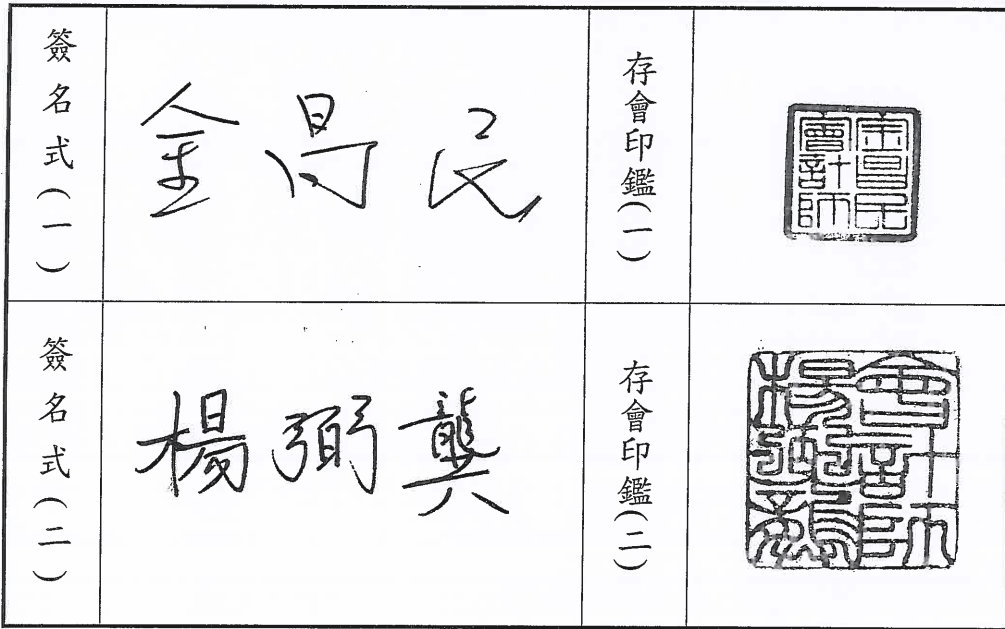 簽名式（一）
金昌民
存會印鑑（一）
金昌民
會計師
簽名式（二）
楊弼
存會印鑑（二）
會計師
楊